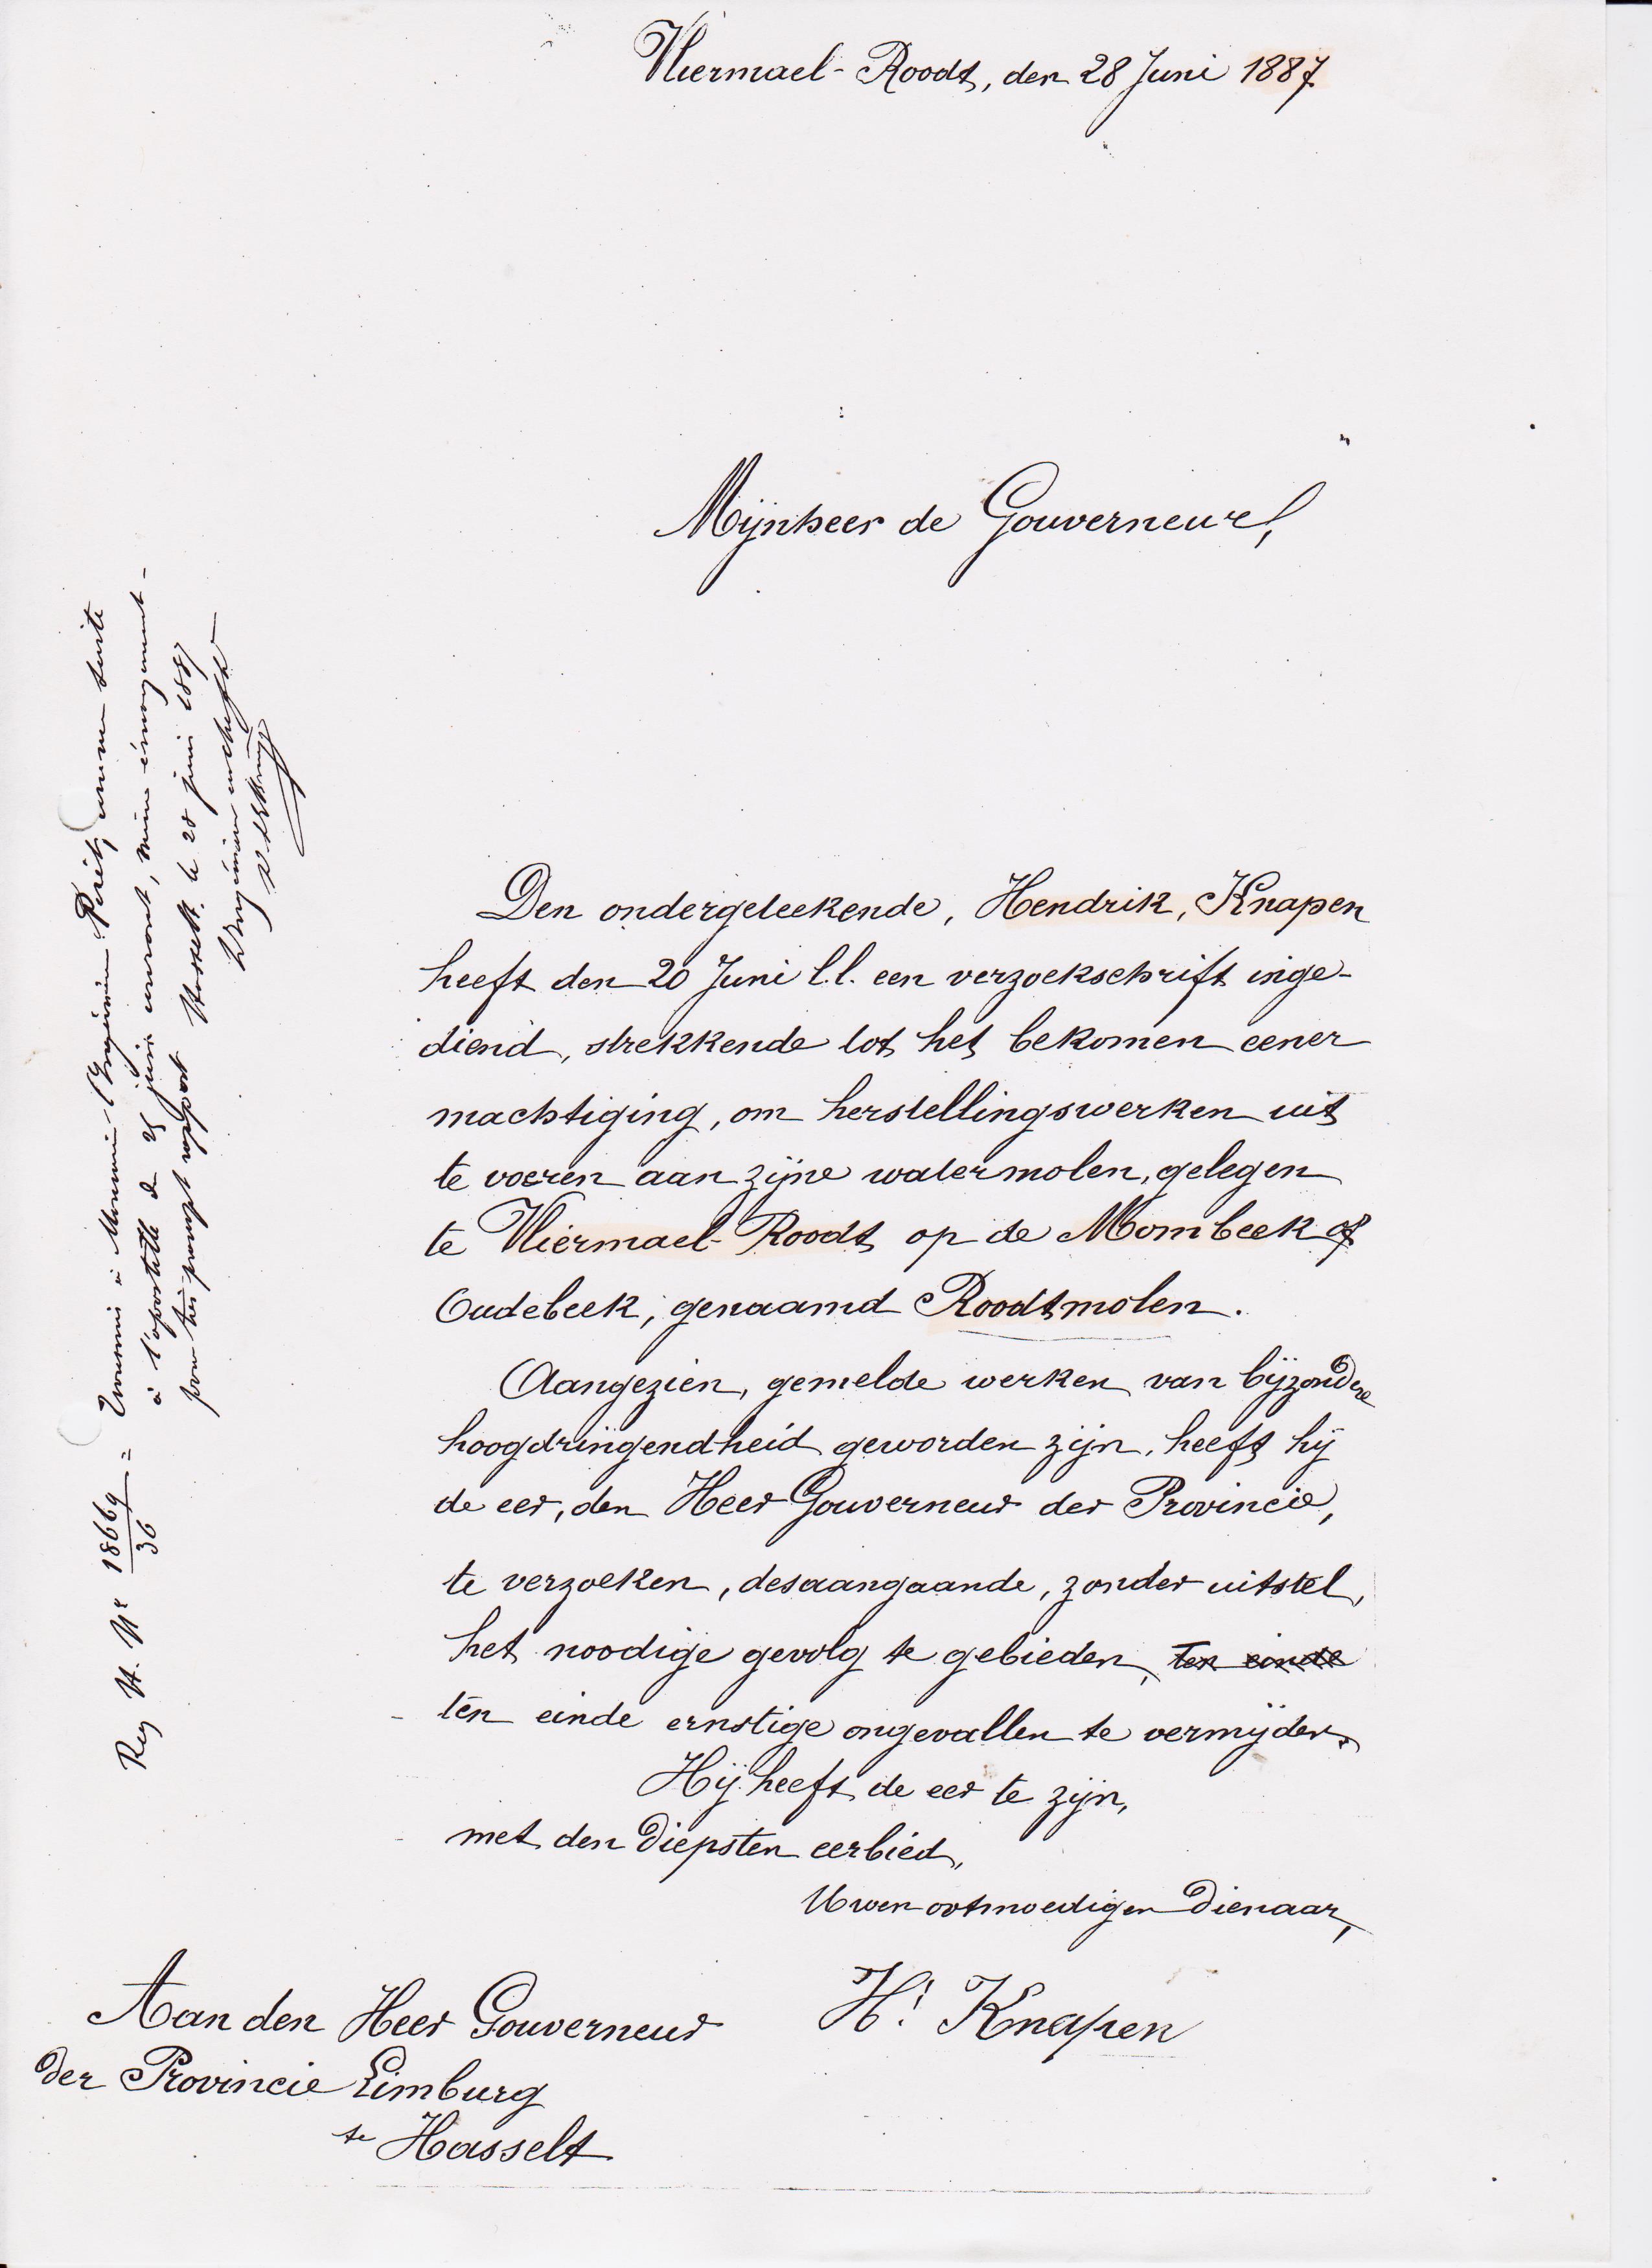 Vliermael-Roodt, den 28 Juni 1887
Mijnheer de Gouverneur,
Den ondergeteekende, Hendrik, Knapen
heeft den 20 Juni l.l. een verzoekschrift inge-
diend, strekkende tot het bekomen eener
machtiging, om herstellingswerken uit
te voeren aan zijne watermolen, gelegen
te Vliermael-Roodt op de Mombeek of
Oudebeek, genaamd Roodtmolen.
Aangezien, gemelde werken van bijzondere
hoogdringendheid geworden zijn, heeft hij
de eer, den Heer Gouverneur der Provincie,
te verzoeken, desaangaande, zonder uitstel,
het noodige gevolg te gebieden, ten einde
ten einde ernstige ongevallen te vermijden.
Hij heeft de eer te zijn,
met den diepsten eerbied,
Uwen ootmoedigen dienaar,
Ht Knapen
Aan den Heer Gouverneur
der Provincie Limburg
te Hasselt
Reg H. Nr 18669/36 = Transmis à Monsieur l'Ingénieur comme suite
à l'apostille du 25 juin courant, même émargement -
pour très prompt rapport Hasselt le 28 juin 1887
L'Ingénieur en chef